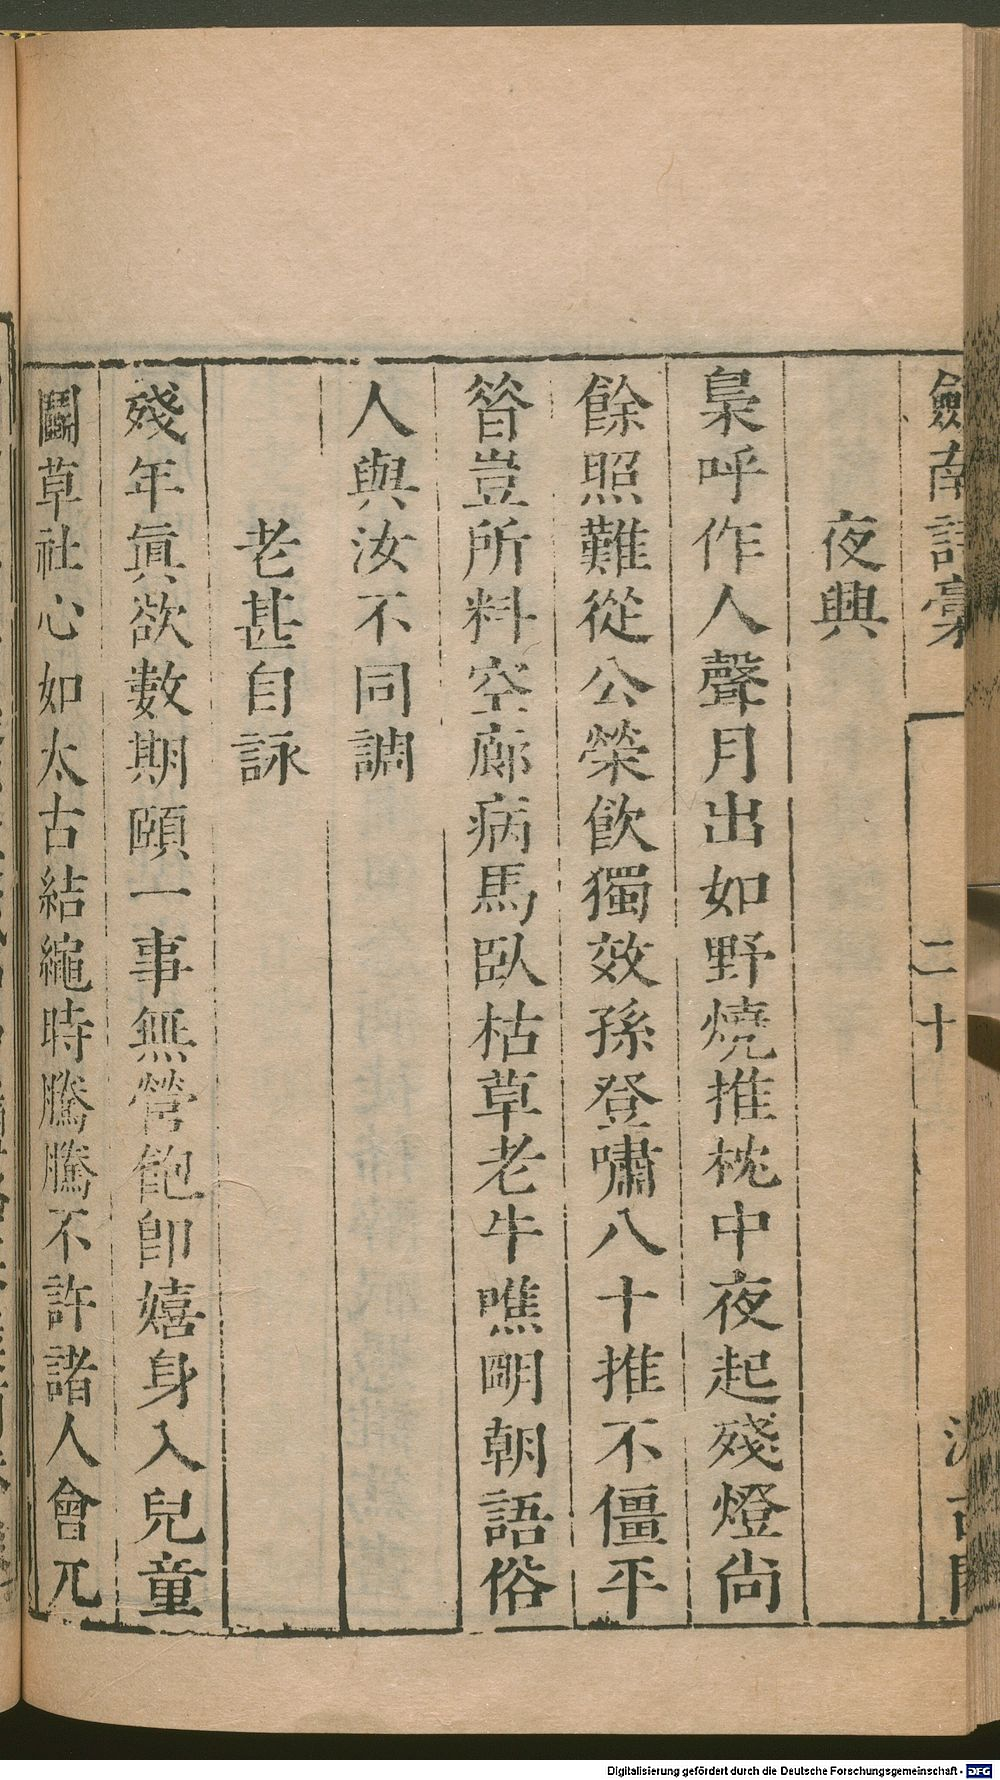 劍南詩稾 二十 汲古閣
夜興
梟呼作人聲月出如野燒推枕中夜起殘燈尙
餘照難從公榮飮獨效孫登嘯八十推不僵平
昝豈所料空廊病馬臥枯草老牛噍明朝語俗
人與汝不同調
老甚自詠
殘年眞欲數期頤一事無營飽卽嬉身入兒童
鬬草社心如太古結繩時騰騰不許諸人會兀
Digitalisierung gefördert durch die Deutsche Forschungsgemeinschaft - DFG